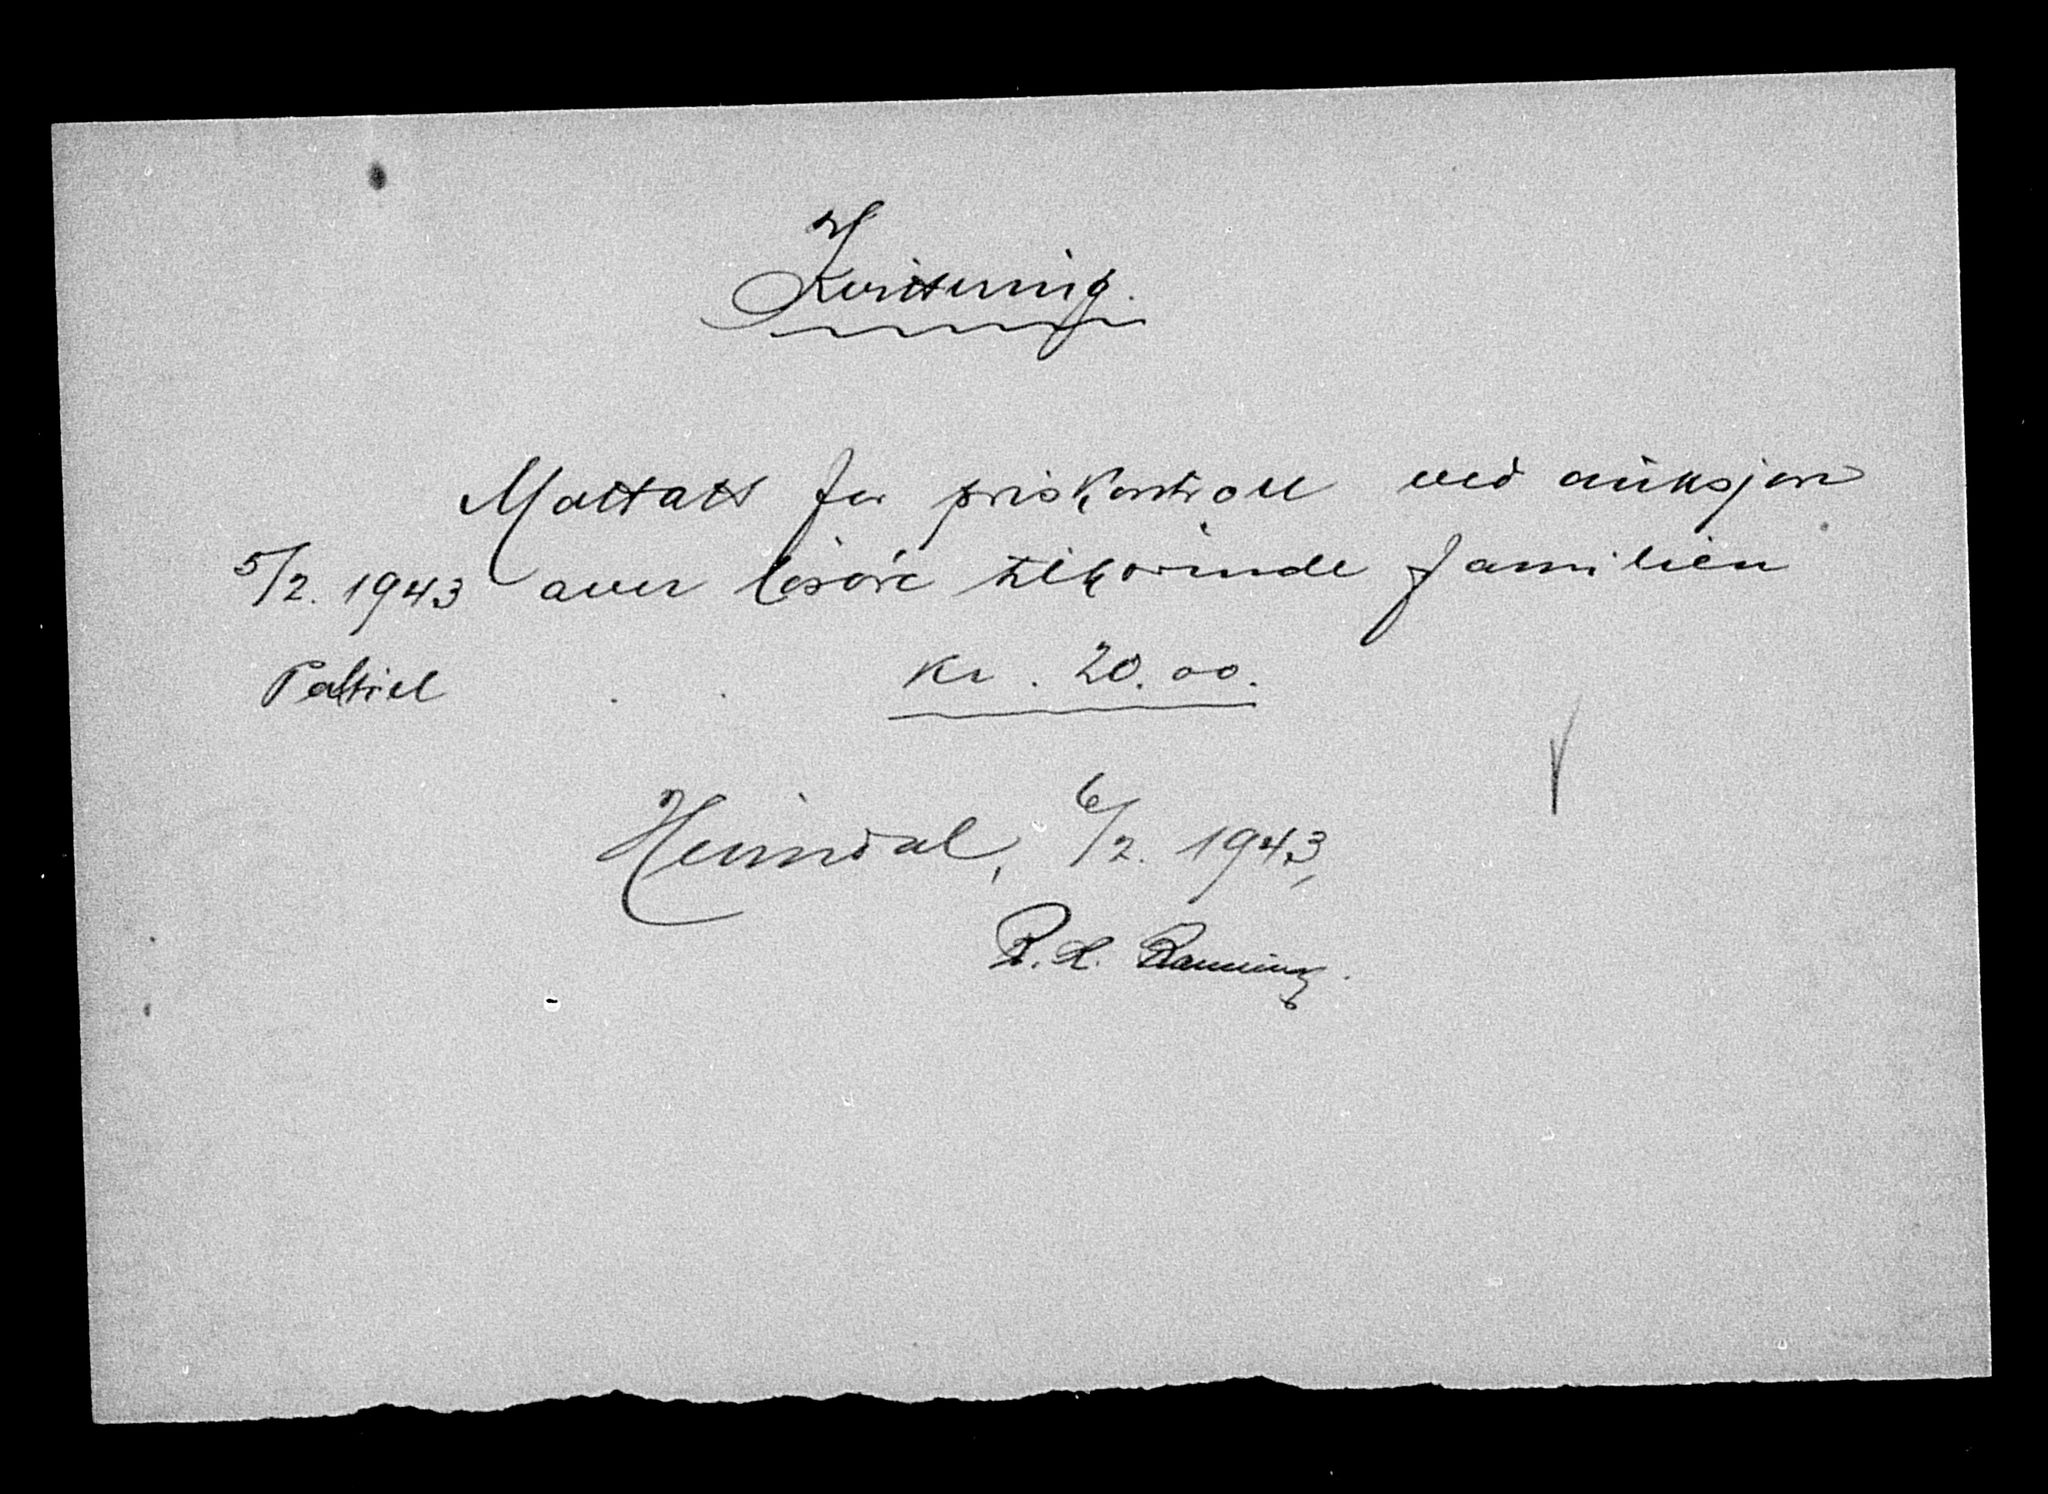 Kvittering.
Mottatt for priskontroll ved auksjon
5/2. 1943 over løsøre tilhørende familien
Paltiel kr. 20.00.
Heimdal, 6/2. 1943,
R. H. Ranning.